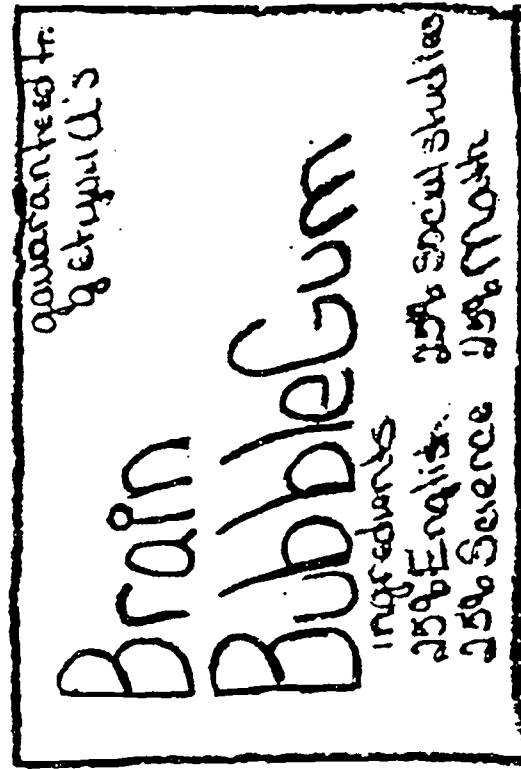 gauaranteed to
get you A's
Brain
BubbleGum
ingrediants
25% English 25% Social studies
25% Science 25% Math